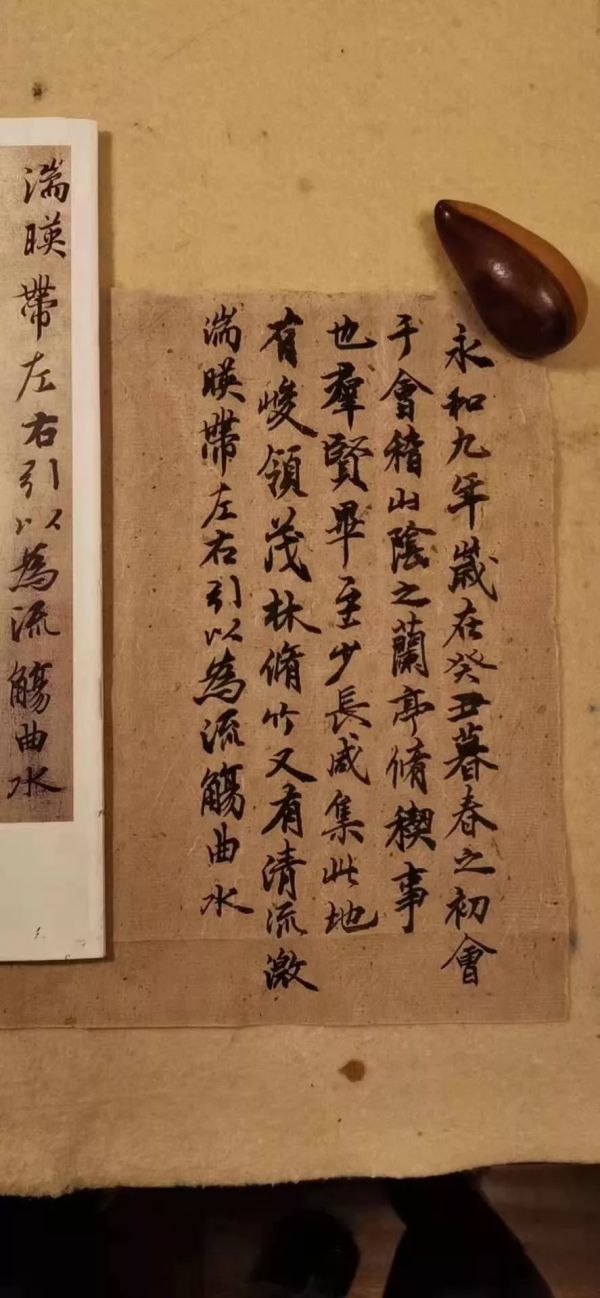 永和九年歲在癸丑暮春之初會
于會稽山陰之蘭亭脩稧事
也羣賢畢至少長咸集此地
有峻領茂林脩竹又有清流激
湍暎帶左右引以為流觴曲水
湍暎帶左右引以為流觴曲水